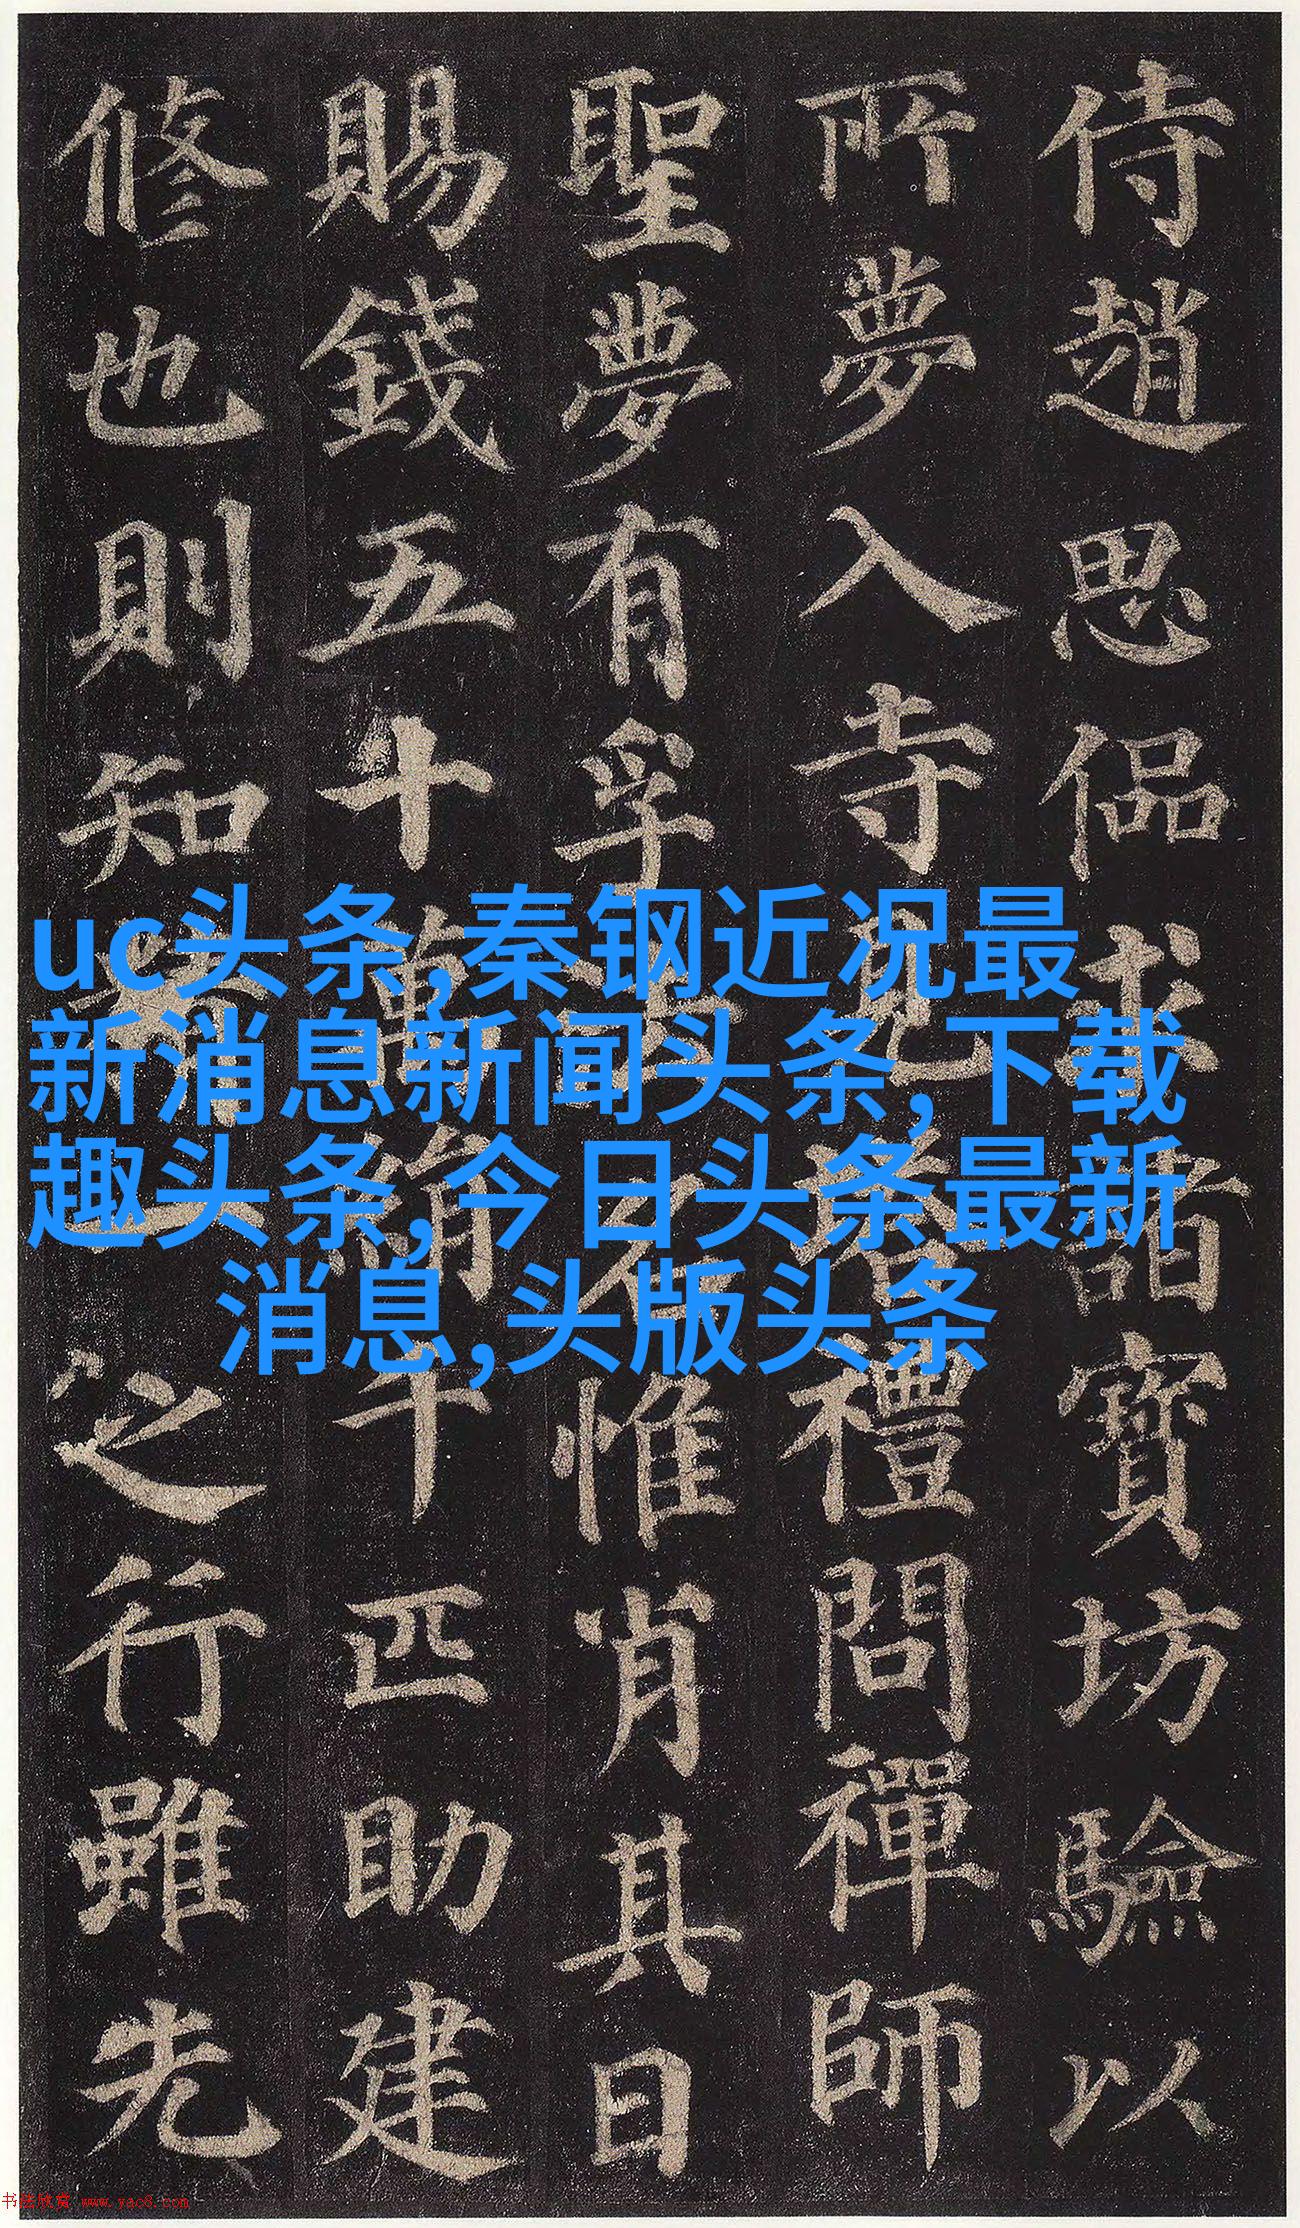 侍趙思偘求諸寶坊驗以
所夢入寺見塔禮問禪師
聖夢有孚法名惟肖其日
賜錢五十萬絹千匹助建
修也則知精一之行雖先
uc头条,秦钢近况最
新消息新闻头条,下载
趣头条,今日头条最新
消息,头版头条
书法欣赏 www.yac8.com